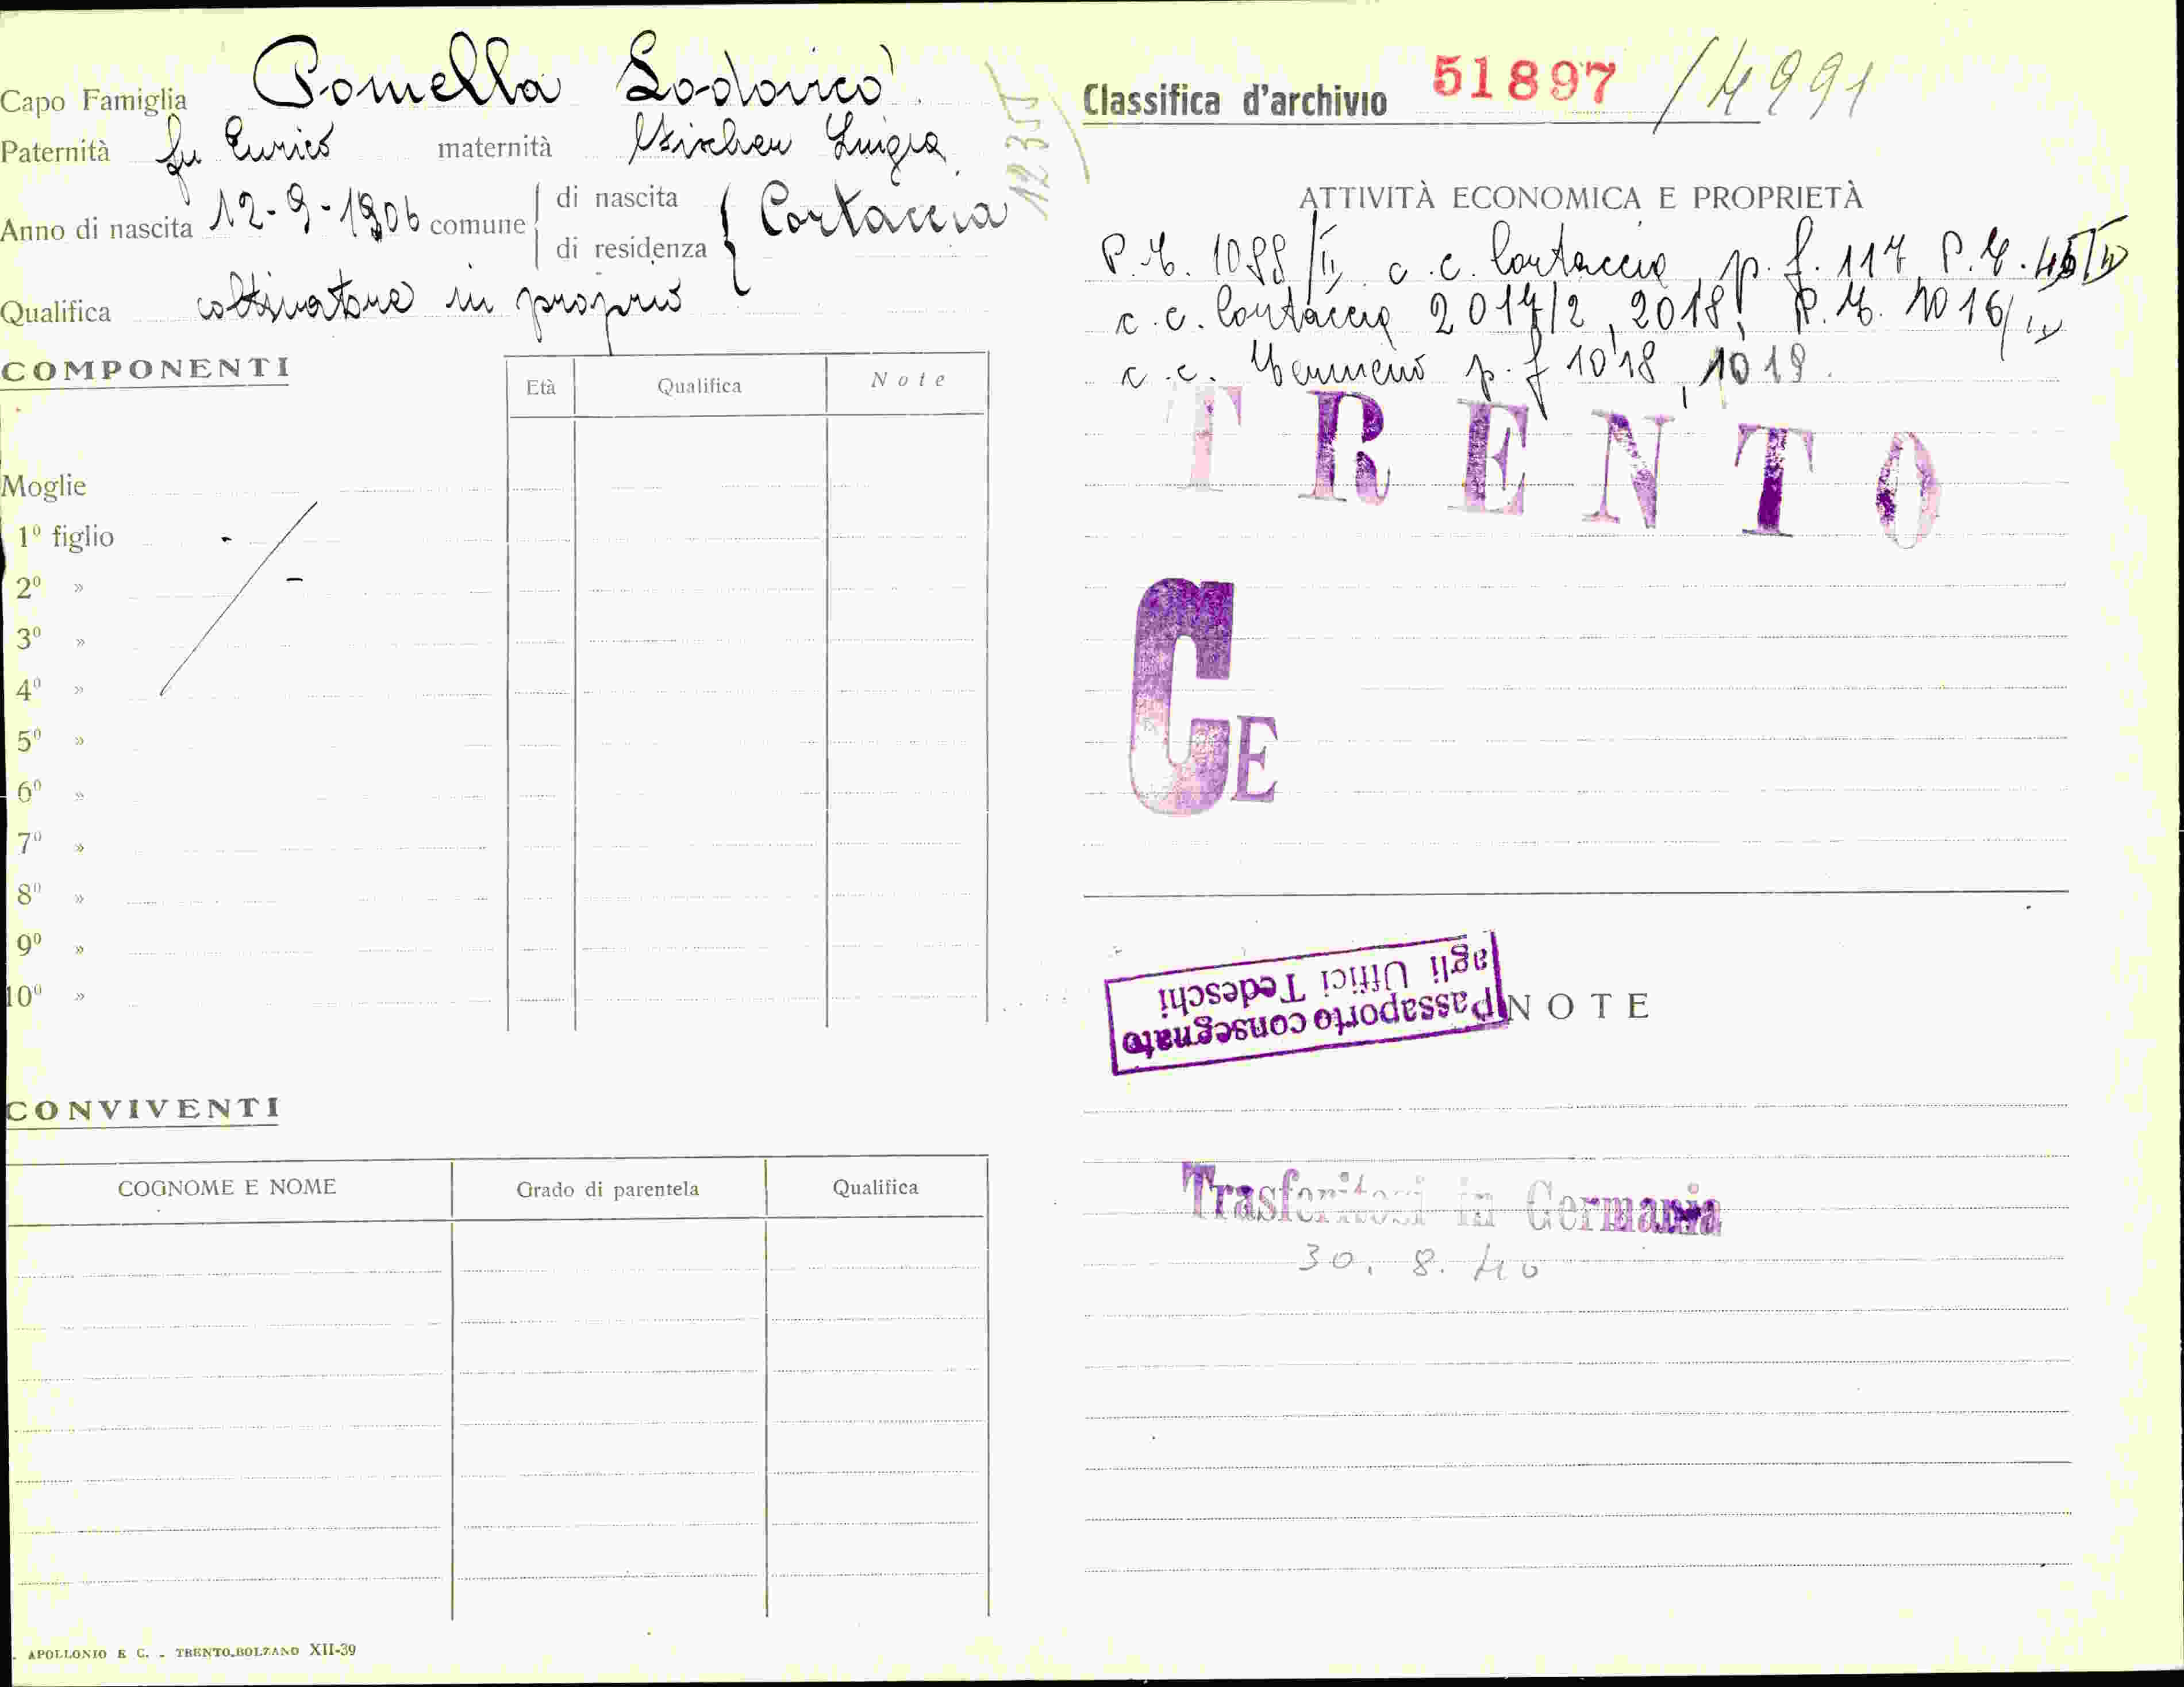 Capo Famiglia Pomella Lodovico
Paternità fu Enrico maternità Luigia
Anno di nascita 12-9-1906 comune di nascita di residenza Cortaccia
Qualifica coltivatore in proprio
12355
COMPONENTI
Età Qualifica Note
Moglie
1º figlio -
2º » -
3º »
4º »
5º »
6º »
7º »
8º »
9º »
10º »
CONVIVENTI
COGNOME E NOME Grado di parentela Qualifica
APOLLONIO E C. - TRENTO-BOLZANO XII-39
Classifica d'archivio 51897 /4991
ATTIVITÀ ECONOMICA E PROPRIETÀ
P.T. 1088/II c.c. Cortaccia, p.f. 117, P.T.
c.c. Cortaccia 2017/2, 2018, P.T. 1016/
c.c. Termeno p.f 1018, 1019.
TRENTO
CE
Passaporto consegnato
agli Uffici Tedeschi
NOTE
Trasferitosi in Germania
30. 8. 40